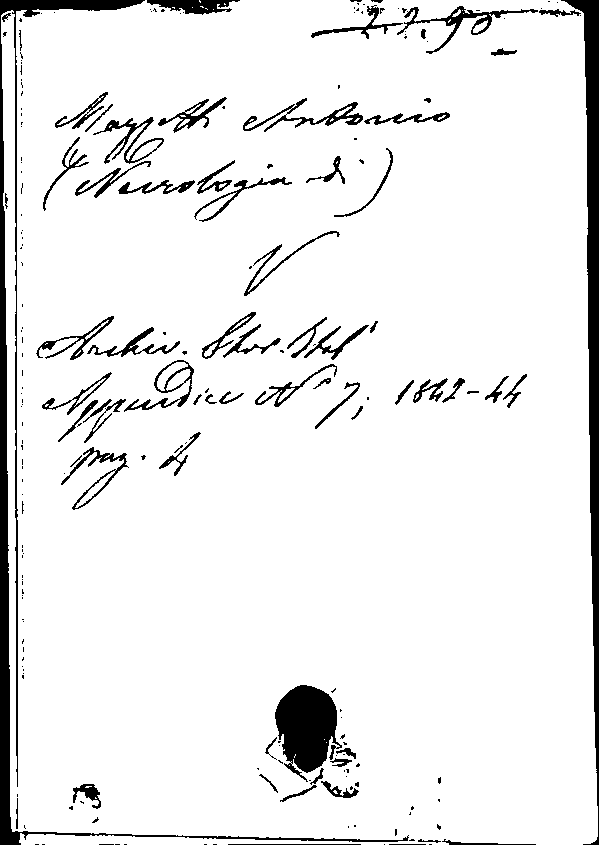 2.2.90
Mazzetti Antonio
(Necrologia di)
V
Archiv. Stor. Ital'
Appendice N° 7; 1842-44
pag. 4